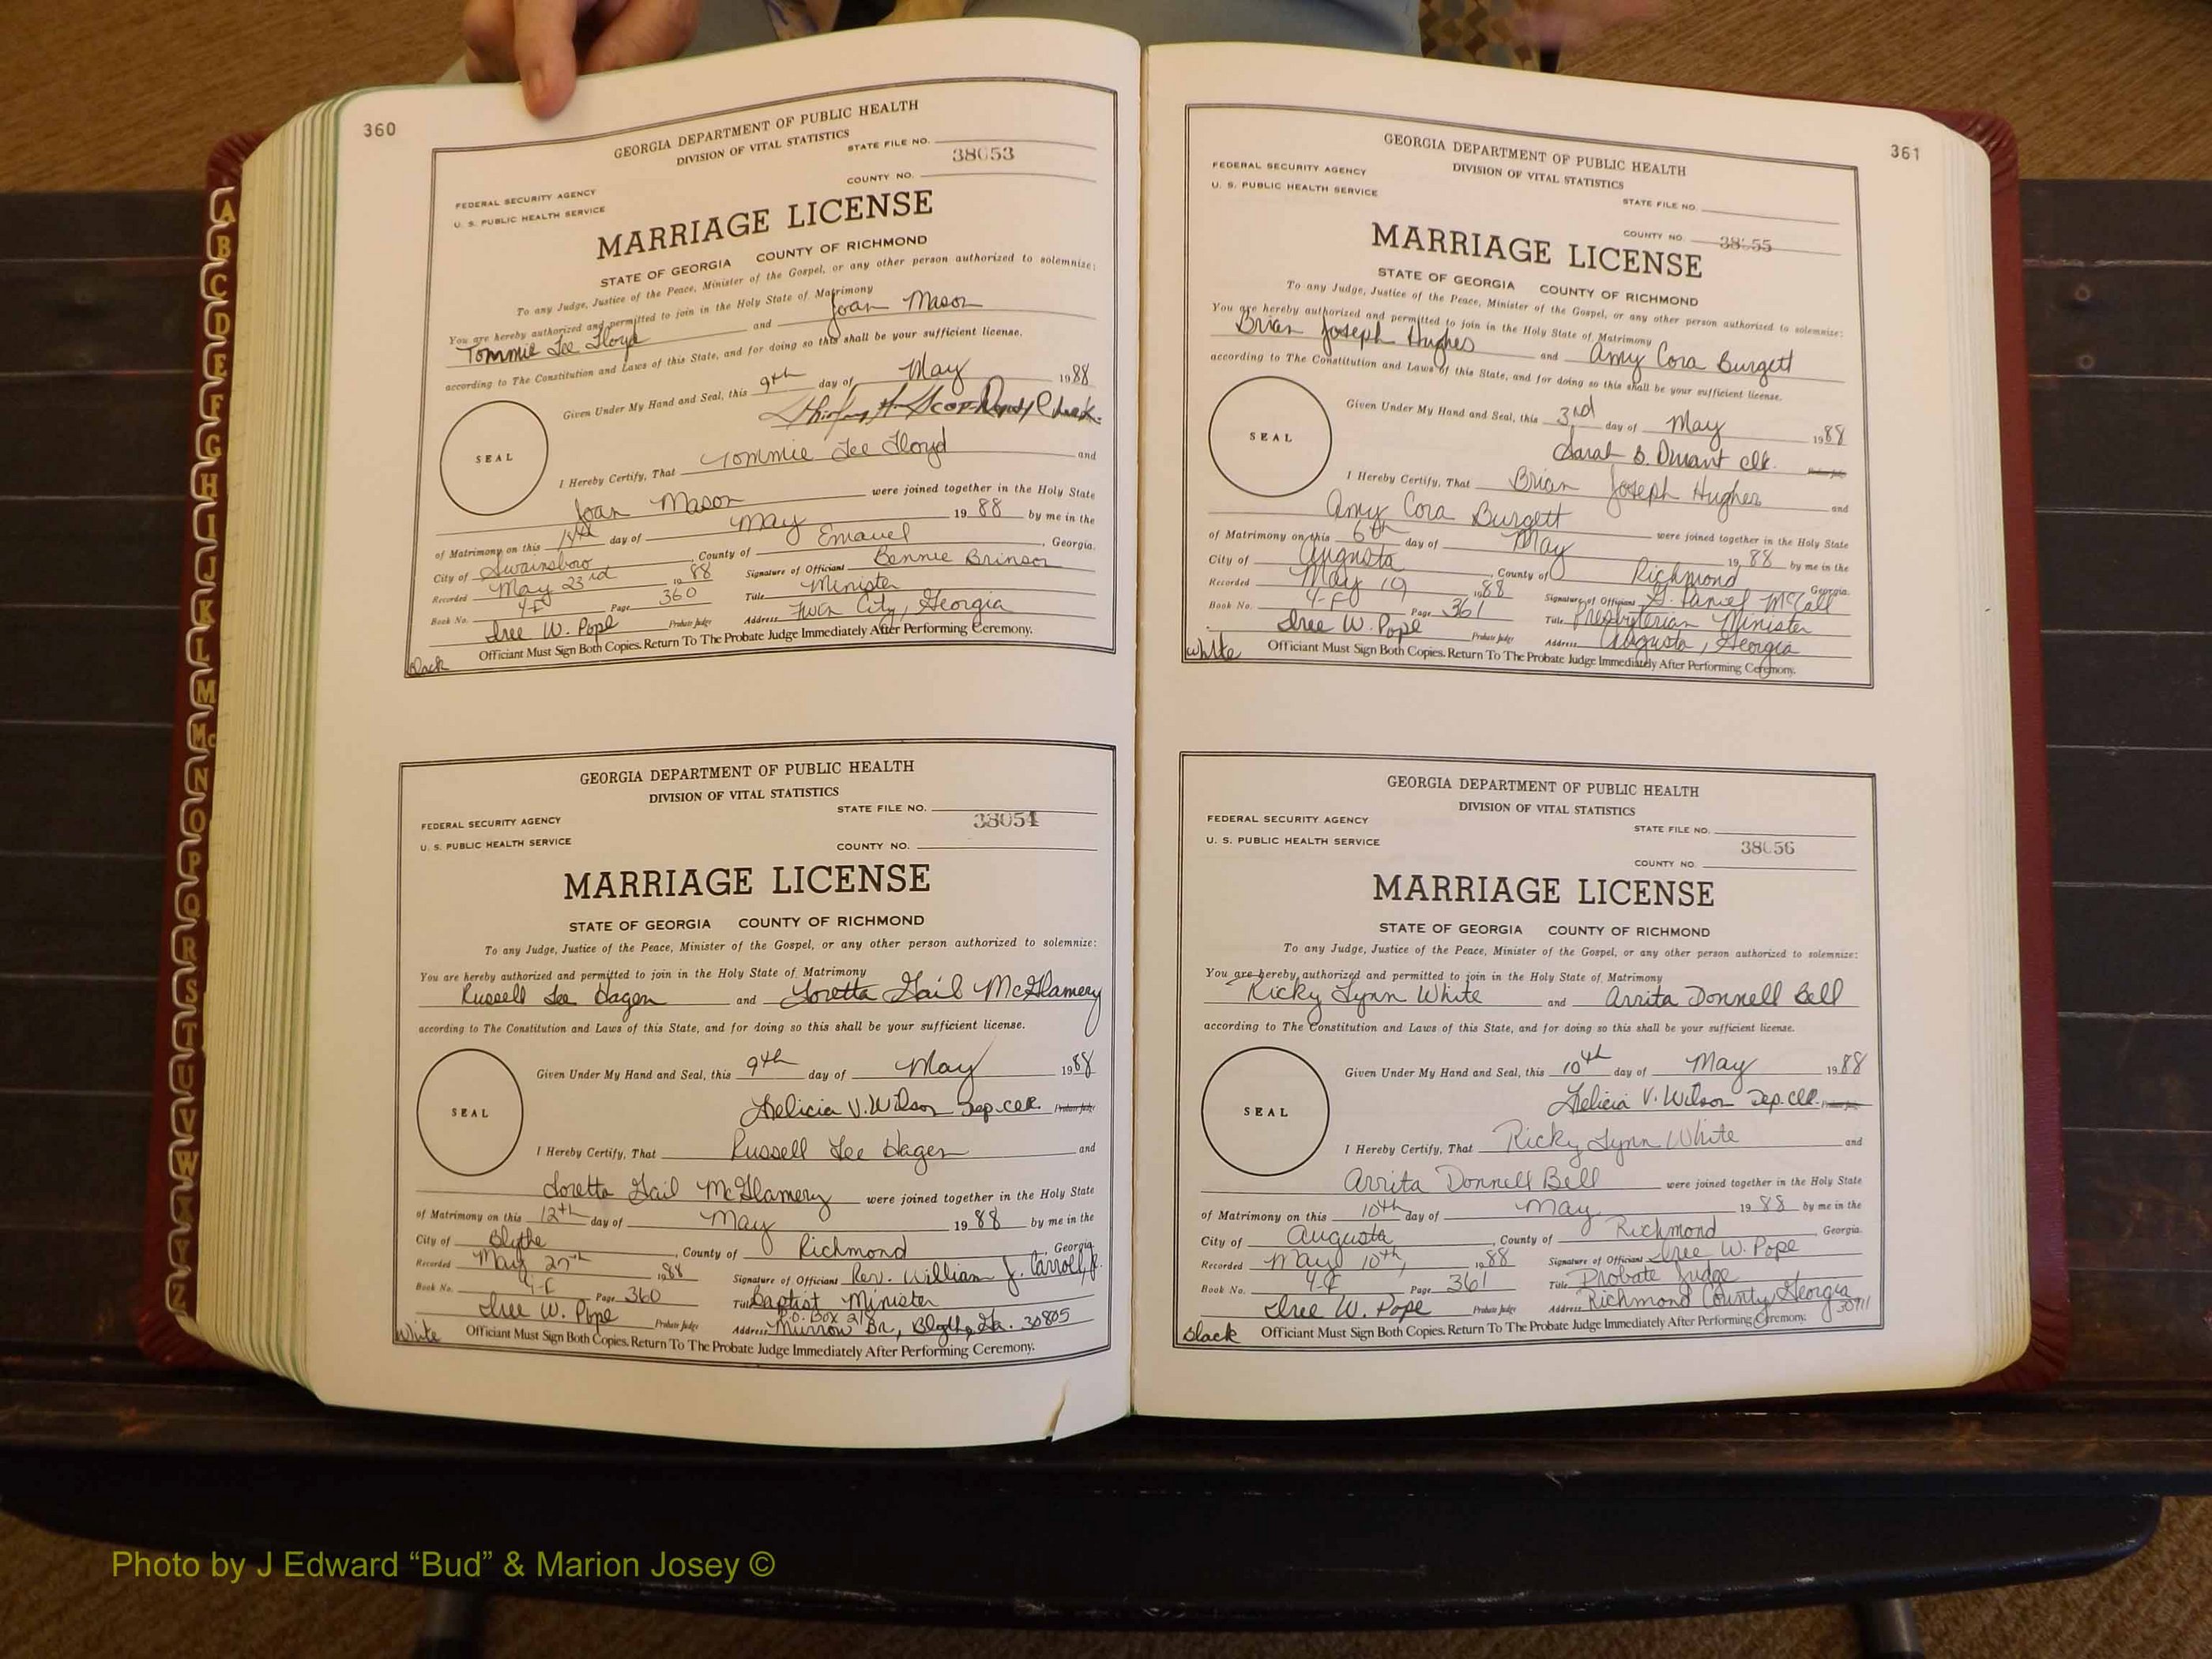 360
GEORGIA DEPARTMENT OF PUBLIC HEALTH
DIVISION OF VITAL STATISTICS
STATE FILE NO.
38053
FEDERAL SECURITY AGENCY
COUNTY NO.
U. S. PUBLIC HEALTH SERVICE
MARRIAGE LICENSE
STATE OF GEORGIA COUNTY OF RICHMOND
To any Judge, Justice of the Peace, Minister of the Gospel, or any other person authorized to solemnize:
You are hereby authorized and permitted to join in the Holy State of Matrimony
Tommie Lee Floyd and Joan Mason
according to The Constitution and Laws of this State, and for doing so this shall be your sufficient license.
Given Under My Hand and Seal, this 9th day of May 1988
SEAL
I Hereby Certify, That Tommie Lee Floyd and
Joan Mason were joined together in the Holy State
of Matrimony on this day of May 1988 by me in the
City of Swainsboro County of Emanuel, Georgia.
Recorded May 23rd 1988 Signature of Officiant Bennie Brinson
Book No. 4-F Page 360 Title Minister
Iree W. Pope Probate Judge Address Twin City, Georgia
Black Officiant Must Sign Both Copies. Return To The Probate Judge Immediately After Performing Ceremony.
GEORGIA DEPARTMENT OF PUBLIC HEALTH
DIVISION OF VITAL STATISTICS
STATE FILE NO.
38054
FEDERAL SECURITY AGENCY
U. S. PUBLIC HEALTH SERVICE
COUNTY NO.
MARRIAGE LICENSE
STATE OF GEORGIA COUNTY OF RICHMOND
To any Judge, Justice of the Peace, Minister of the Gospel, or any other person authorized to solemnize:
You are hereby authorized and permitted to join in the Holy State of Matrimony
Russell Lee Hagen and Loretta Gail McGlamery
according to The Constitution and Laws of this State, and for doing so this shall be your sufficient license.
Given Under My Hand and Seal, this 9th day of May 1988
Felicia V. Wilson Dep. Clk. Probate Judge
SEAL
I Hereby Certify, That Russell Lee Hagen and
Loretta Gail McGlamery were joined together in the Holy State
of Matrimony on this 12th day of May 1988 by me in the
City of Blythe, County of Richmond, Georgia
Recorded May 27th 1988 Signature of Officiant Rev. William J. Carroll, Jr.
Book No. 4-F Page 360 Title Baptist Minister
P.O. Box 21
Iree W. Pope Probate Judge Address Murrow Dr., Blythe, Ga. 30805
White Officiant Must Sign Both Copies. Return To The Probate Judge Immediately After Performing Ceremony.
361
GEORGIA DEPARTMENT OF PUBLIC HEALTH
DIVISION OF VITAL STATISTICS
FEDERAL SECURITY AGENCY
U. S. PUBLIC HEALTH SERVICE
STATE FILE NO.
COUNTY NO. 38055
MARRIAGE LICENSE
STATE OF GEORGIA COUNTY OF RICHMOND
To any Judge, Justice of the Peace, Minister of the Gospel, or any other person authorized to solemnize:
You are hereby authorized and permitted to join in the Holy State of Matrimony
Brian Joseph Hughes and Amy Cora Burgett
according to The Constitution and Laws of this State, and for doing so this shall be your sufficient license.
Given Under My Hand and Seal, this 3rd day of May 1988
Sarah B. Clk. Probate Judge
SEAL
I Hereby Certify, That Brian Joseph Hughes and
Amy Cora Burgett were joined together in the Holy State
of Matrimony on this 6th day of May 1988 by me in the
City of Augusta, County of Richmond Georgia.
Recorded May 19 1988 Signature of Officiant G. Daniel McCall
Book No. 4-F Page 361 Title Presbyterian Minister
Iree W. Pope Probate Judge Address Augusta, Georgia
White Officiant Must Sign Both Copies. Return To The Probate Judge Immediately After Performing Ceremony.
GEORGIA DEPARTMENT OF PUBLIC HEALTH
DIVISION OF VITAL STATISTICS
FEDERAL SECURITY AGENCY
STATE FILE NO.
U. S. PUBLIC HEALTH SERVICE
38056
COUNTY NO.
MARRIAGE LICENSE
STATE OF GEORGIA COUNTY OF RICHMOND
To any Judge, Justice of the Peace, Minister of the Gospel, or any other person authorized to solemnize:
You are hereby authorized and permitted to join in the Holy State of Matrimony
Ricky Lynn White and Arrita Donnell Bell
according to The Constitution and Laws of this State, and for doing so this shall be your sufficient license.
Given Under My Hand and Seal, this 10th day of May 1988
Felicia V. Wilson Dep. Clk. Probate Judge
SEAL
I Hereby Certify, That Ricky Lynn White and
Arrita Donnell Bell were joined together in the Holy State
of Matrimony on this 10th day of May 1988 by me in the
City of Augusta, County of Richmond Georgia.
Recorded May 10th, 1988 Signature of Officiant Iree W. Pope
Book No. 4-F Page 361 Title Probate Judge
Iree W. Pope Probate Judge Address Richmond County, Georgia 30911
Black Officiant Must Sign Both Copies. Return To The Probate Judge Immediately After Performing Ceremony.
A
B
C
D
E
F
G
H
I
J
K
L
M
Mc
N
O
P
Q
R
S
T
U
V
W
X
Y
Z
Photo by J Edward “Bud” & Marion Josey ©